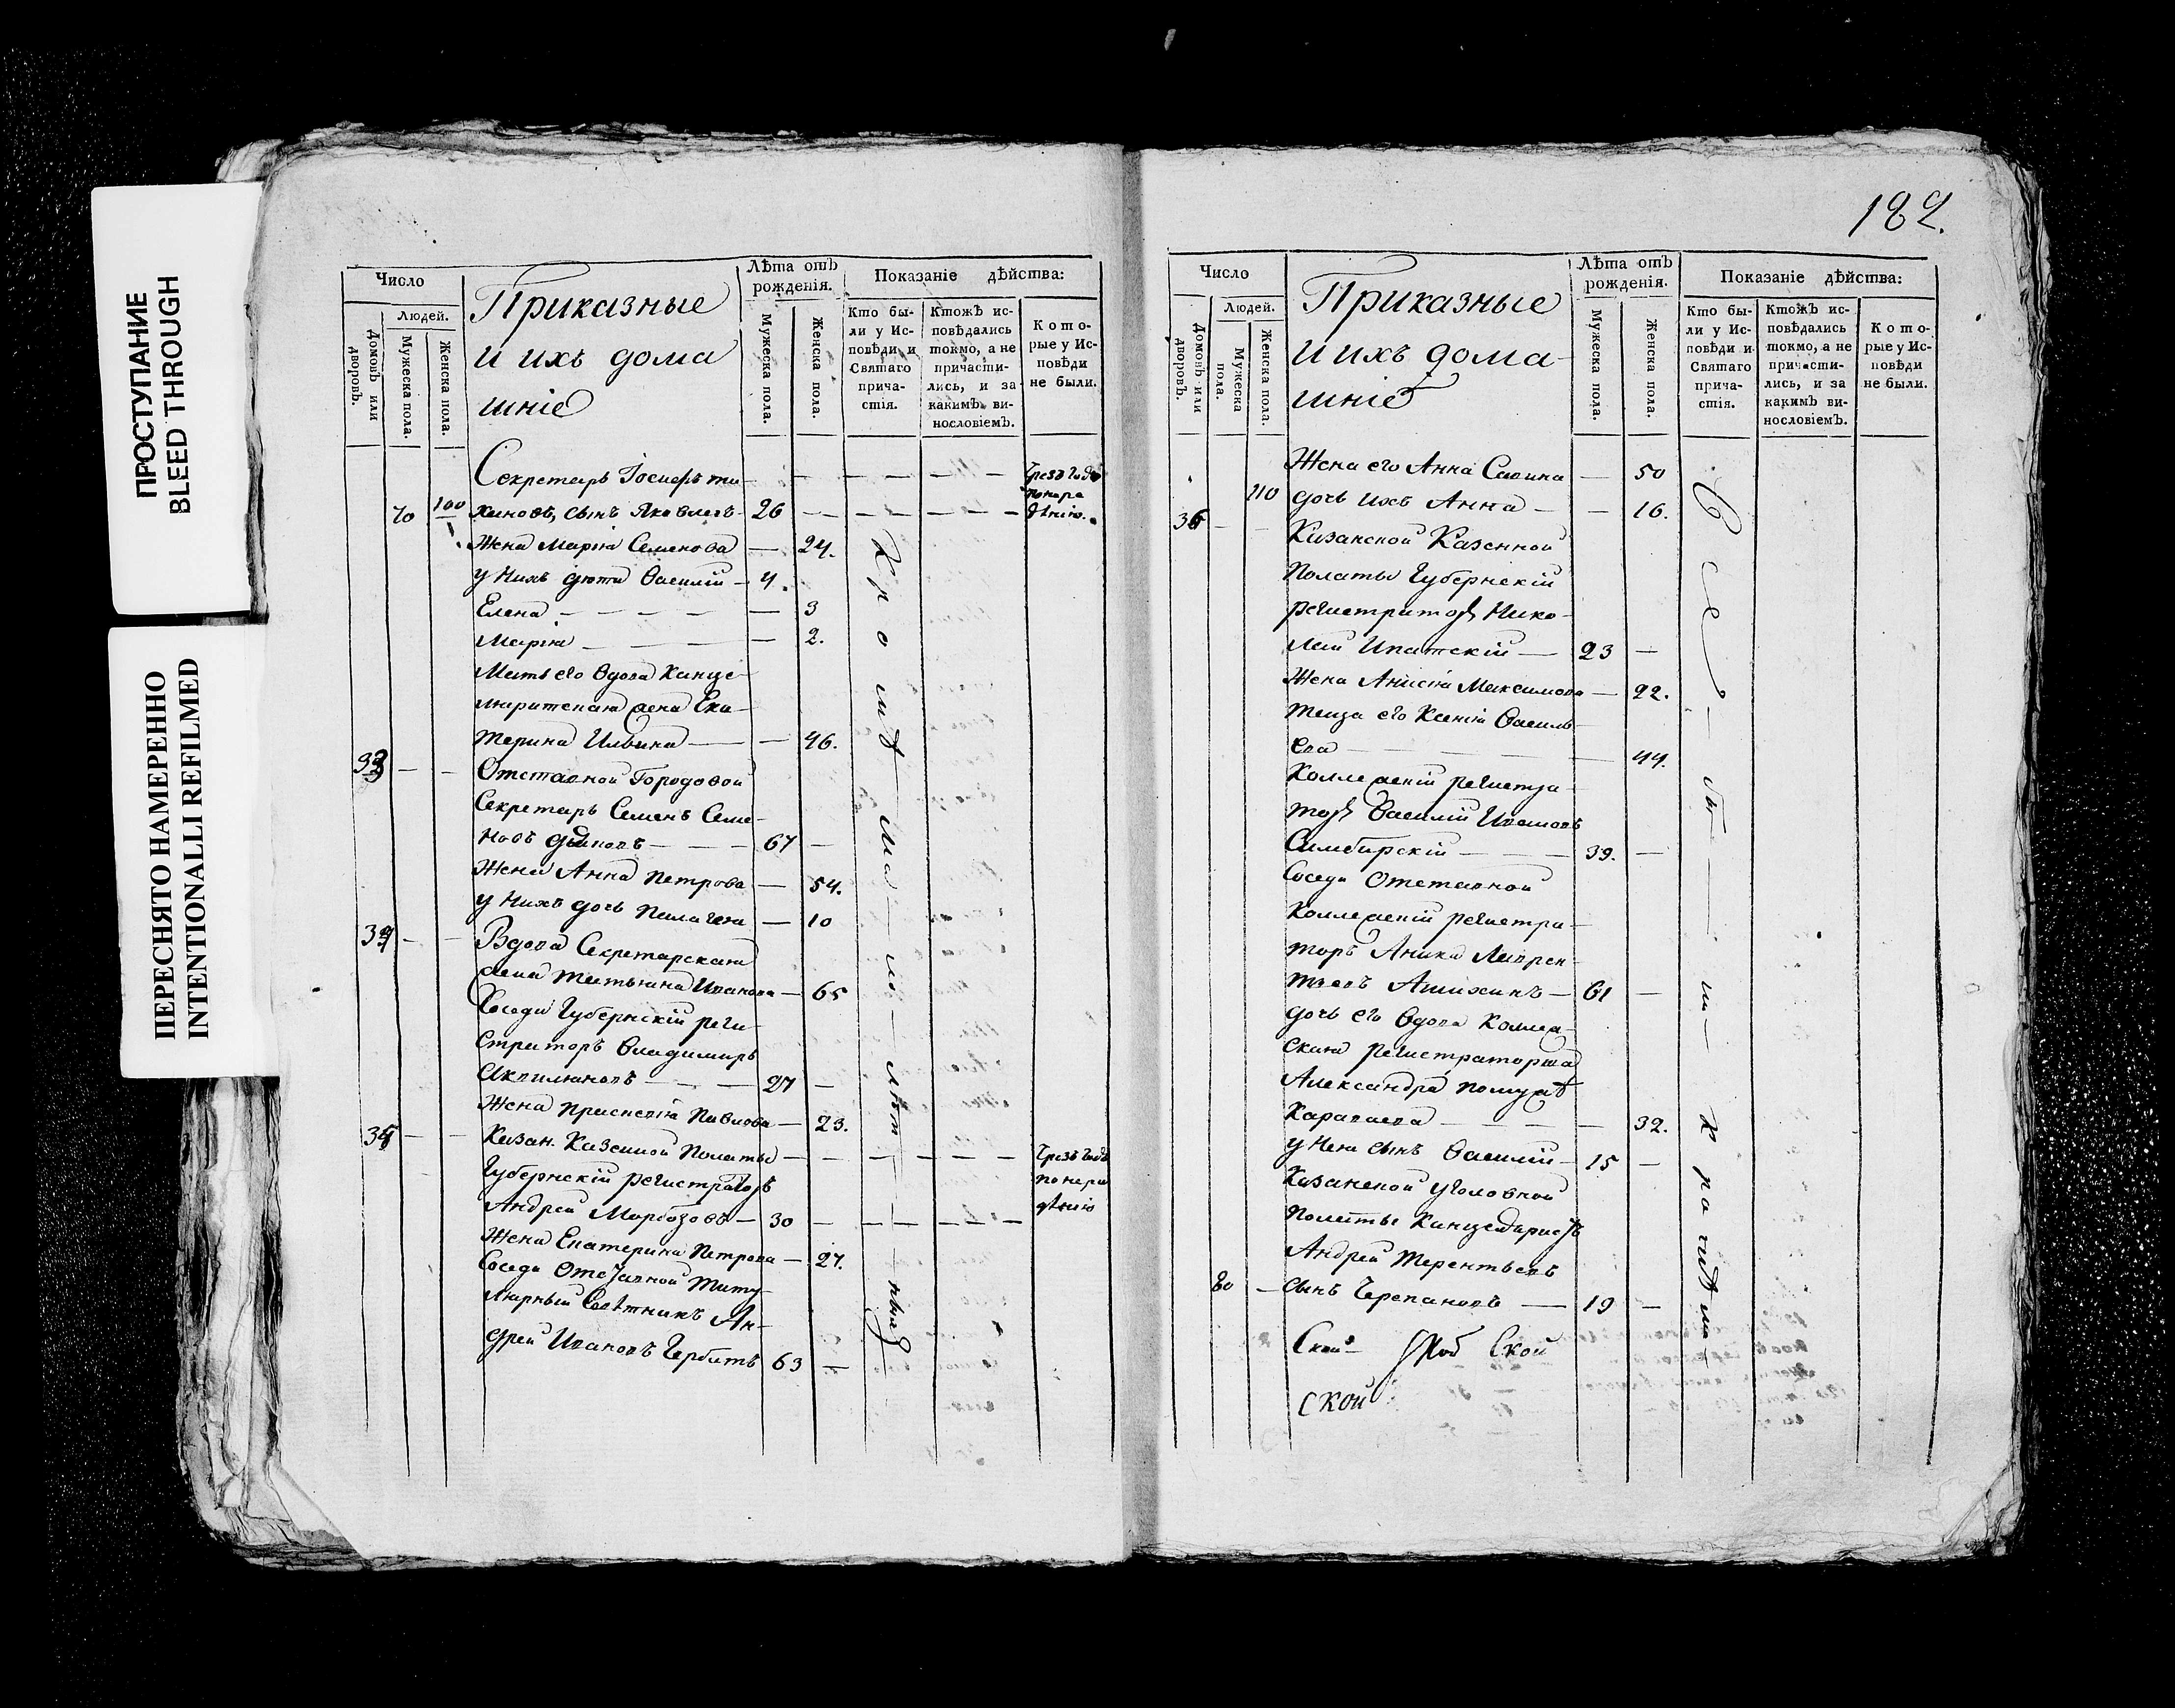 ПРОСТУПАНИЕ
BLEED THROUGH
ПЕРЕСНЯТО НАМЕРЕННО
INTENTIONALLI REFILMED
Число
Людей.
Домовъ или дворовъ.
Мужеска пола.
Женска пола.
Приказные
и ихъ дома
шніе
Лѣта отъ
рожденія.
Мужеска пола.
Женска пола.
Показаніе дѣйства:
Кто бы-
ли у Ис-
повѣди и
Святаго
прича-
стія.
Ктожъ ис-
повѣдались
токмо, а не
причасти-
лись, и за
какимъ ви-
нословіемъ.
Кото-
рые у Ис-
повѣди
не были.
Секретарь
70 100 сынъ Яковлевъ 26
Жена Марія Семенова — 24.
у нихъ дѣти Василій — 4.
Елена — 3
Марія — 2.
Мать его вдова Канце-
ляритская жена Ека-
терина Ильина — 46.
33 Отставной Городовой
Секретарь Семенъ Семе-
новъ 67 —
Жена Анна Петрова — 54.
у нихъ дочь Пелагея — 10
Вдова Секретарская
жена Татьяна Иванова — 65
Соседи Губернскій реги-
страторъ Владимиръ
27 —
Жена Павлова — 23.
Казан. Казенной Полаты
Губернскій регистраторъ
Андрей 30 —
чрезъ годъ
по нера
дѣнію
Жена Екатерина Петрова — 27.
Соседи Отставной Титу-
лярный Советникъ Ан-
дрей Ивановъ 63 —
182.
Число
Людей.
Домовъ или дворовъ.
Мужеска пола.
Женска пола.
Приказные
и ихъ дома-
шніе
Лѣта отъ
рожденія.
Мужеска пола.
Женска пола.
Показаніе дѣйства:
Кто бы-
ли у Ис-
повѣди и
Святаго
прича-
стія.
Ктожъ ис-
повѣдались
токмо, а не
причасти-
лись, и за
какимъ ви-
нословіемъ.
Кото-
рые у Ис-
повѣди
не были.
Жена его Анна Савина — 50
110 дочь ихъ Анна — 16.
Казанской Казенной
Полаты Губернскій
регистраторъ Нико-
лай Ипатскій — 23 —
Жена Анисія Максимова — 22.
теща его Ксенія Василь-
ева — 44.
Коллежскій регистра-
торъ Василій Ивановъ
Симбирскій — 39. —
Соседи Отставной
Коллежскій регистра-
торъ Аника Лаврен-
тьевъ 61 —
дочь его вдова Коллеж-
ская регистраторша
Александра по мужѣ
Каратаева — 32.
у нея сынъ Василій — 15 —
Казанской уголовной
Полаты Канцеляристъ
Андрей Терентьевъ
80 — сынъ Черепановъ — 19 —
Ской Ской
ской